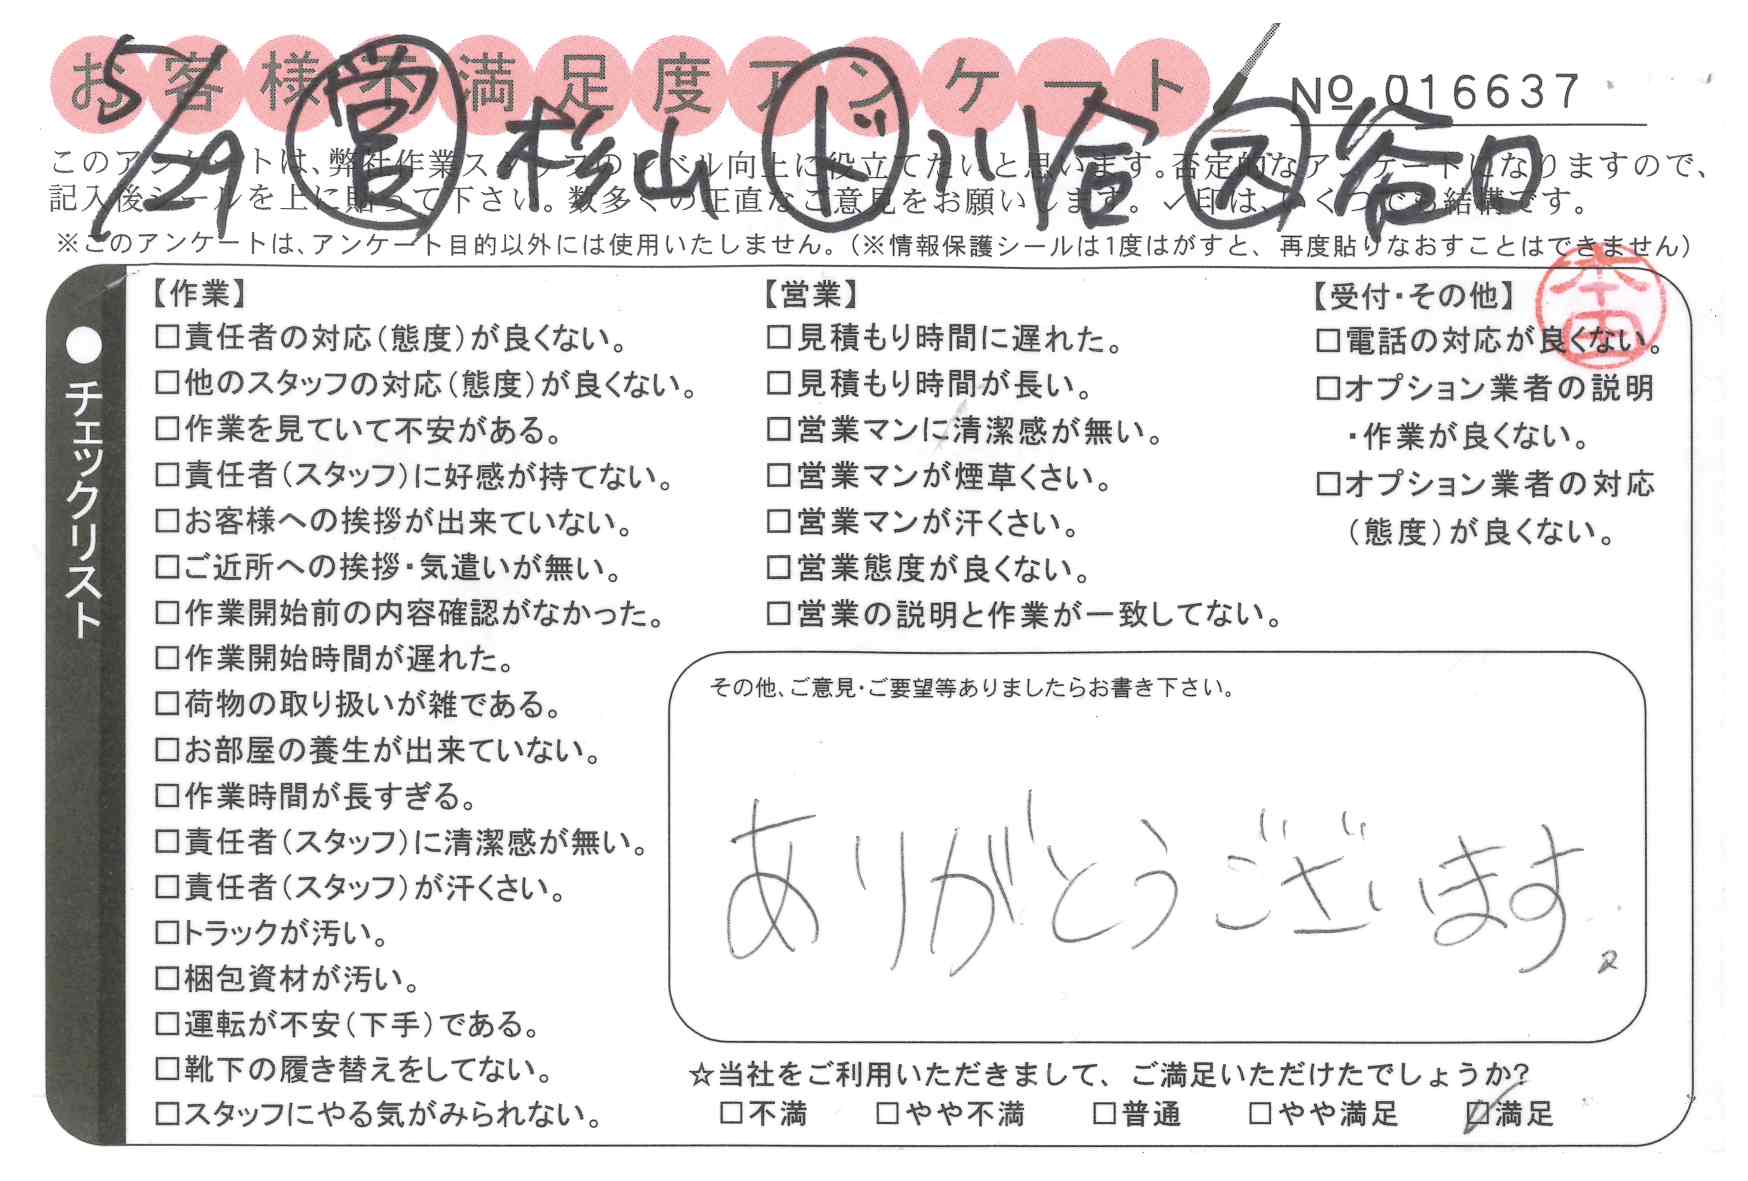 お客様不満足度アンケート
№ 016637
5/29 営 杉山 ド 川合 ス 谷口
このアンケートは、弊社作業スタッフのレベル向上に役立てたいと思います。否定的なアンケートになりますので、
記入後シールを上に貼って下さい。数多くの正直なご意見をお願いします。✓印は、いくつでも結構です。
※このアンケートは、アンケート目的以外には使用いたしません。(※情報保護シールは1度はがすと、再度貼りなおすことはできません)
●チェックリスト
【作業】
□責任者の対応(態度)が良くない。
□他のスタッフの対応(態度)が良くない。
□作業を見ていて不安がある。
□責任者(スタッフ)に好感が持てない。
□お客様への挨拶が出来ていない。
□ご近所への挨拶・気遣いが無い。
□作業開始前の内容確認がなかった。
□作業開始時間が遅れた。
□荷物の取り扱いが雑である。
□お部屋の養生が出来ていない。
□作業時間が長すぎる。
□責任者(スタッフ)に清潔感が無い。
□責任者(スタッフ)が汗くさい。
□トラックが汚い。
□梱包資材が汚い。
□運転が不安(下手)である。
□靴下の履き替えをしてない。
□スタッフにやる気がみられない。
【営業】
□見積もり時間に遅れた。
□見積もり時間が長い。
□営業マンに清潔感が無い。
□営業マンが煙草くさい。
□営業マンが汗くさい。
□営業態度が良くない。
□営業の説明と作業が一致してない。
【受付・その他】
□電話の対応が良くない。
□オプション業者の説明
・作業が良くない。
□オプション業者の対応
(態度)が良くない。
本田
その他、ご意見・ご要望等ありましたらお書き下さい。
ありがとうございます。
☆当社をご利用いただきまして、ご満足いただけたでしょうか?
□不満 □やや不満 □普通 □やや満足 ☑満足